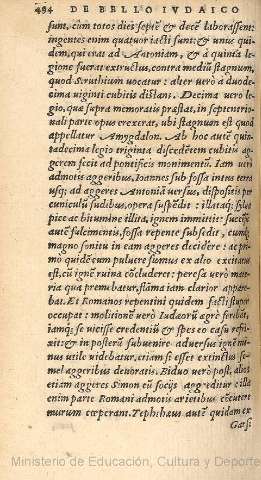 494 DE BELLO IVDAICO
sunt, cùm totos dies septē & decē laborassent:
ingentes enim quatuor iacti sunt: & unus qui-
dem, qui erat ad Antoniam, & à quinta le-
gione fuerat extructus, contra mediū stagnum,
quod Struthium uocatur: alter uerò à duode-
cima uiginti cubitis distans. Decima uero le-
gio, quæ supra memoratis præstat, in septentrio-
nali parte opus exererat, ubi stagnum est quod
appellatur Amygdalon. Ab hoc autē quin-
tadecima legio triginta discedētem cubitis ag-
gerem fecit ad pontificis monimentū. Iam uerò
admotis aggeribus, Ioannes sub fossa intus terra
usq; ad aggeres Antoniā uersus, dispositis per
cuniculū sudibus, opera suspēdit: illataq; sylua
pice ac bitumine illita, ignem immittit: succēsis
autē fulcimentis, fossa repente subsedit, cumq;
magno sonitu in eam aggeres decidêre: ac pri-
mo quidē cum puluere fumus ex alto excitatus
est, cū ignē ruina cōcluderet: peresa verò mate-
ria qua premebatur, flāma iam clarior appare-
bat. Et Romanos repentini quidem facti stupor
occupat: molitionē uerò Iudæorū ægrè ferebāt,
iamq; se uicisse credentiū & spes eo casu refri-
xit: & in posterū subuenire aduersus ignē mi-
nus utile uidebatur, etiam si esset extinctus se-
mel aggeribus deuoratis. Biduo uerò pòst, alios
etiam aggeres Simon cū socijs aggreditur: illa
enim parte Romani admotis arietibus cōcutere
murum cœperant. Tephthæus autē quidam ex
Garsi
Ministerio de Educación, Cultura y Deporte